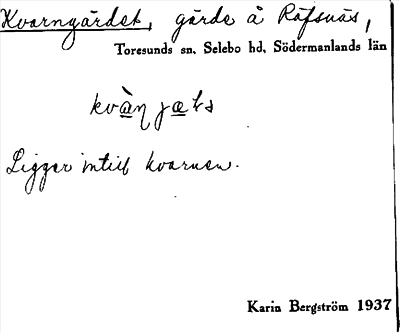 Kvarngärdet, gärde å Räfsnäs,
Toresunds sn, Selebo hd, Södermanlands län
Ligger intill kvarnen.
Karin Bergström 1937